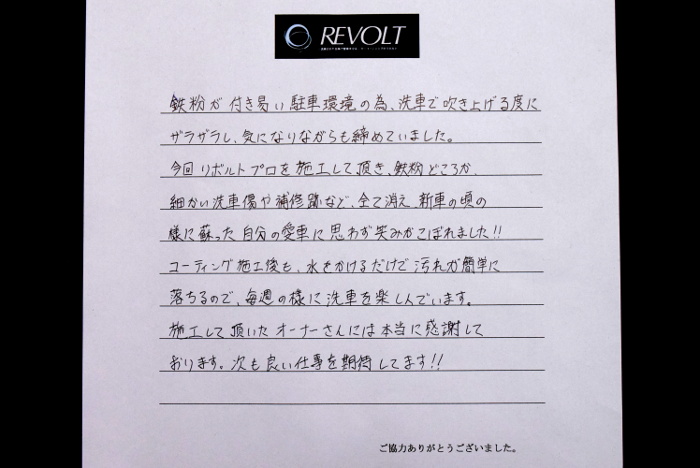 REVOLT
鉄粉が付き易い駐車環境の為、洗車で吹き上げる度に
ザラザラし、気になりながらも締めていました。
今回リボルトプロを施工して頂き、鉄粉どころか、
細かい洗車傷や補修跡など、全て消え 新車の頃の
様に蘇った自分の愛車に思わず笑みがこぼれました!!
コーティング施工後も、水をかけるだけで汚れが簡単に
落ちるので、毎週の様に洗車を楽しんでいます。
施工して頂いたオーナーさんには本当に感謝して
おります。次も良い仕事を期待してます!!
ご協力ありがとうございました。